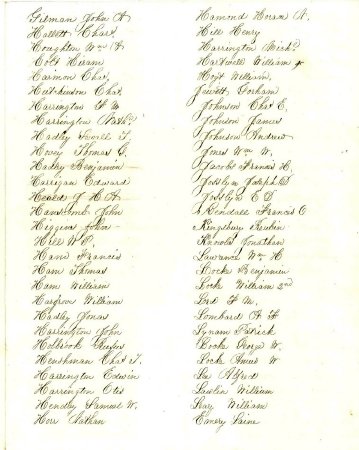 Gilman John A
Hallett Chas.
Houghton Wm F
Holt Hiram
Harmon Chas.
Hutchinson Chas.
Harrington F W
Harrington Nath.
Hadley Sewell T.
Hovey Thomas G.
Hadley Benjamin
Harrigan Edward
Heald J H A
Hanscomb John
Higgins John
Hill W P.
Hand Francis
Ham Thomas
Ham William
Hargrove William
Hadley Jonas
Harrington John
Holbrook Rufus
Henshman Chas. T.
Harrington Edwin
Harrington Otis
Hendley Samuel W.
How Nathan
Hamond Hiram R.
Hill Henry
Harrington Mich.
Hartwell William
Hoyt William,
Jewett Gorham
Johnson Chas C.
Johnson James
Johnson Andrew
Jones Wm W.
Jacobs Francis H.
Josslyn Joseph D.
Josslyn E D
Kendall Francis C
Kingsbury Reubin
Knowls Jonathan
Lawrence Wm H
Locke Benjamin
Locke William 2nd
Lord F W.
Lombard A F
Lynam Patrick
Locke George W.
Locke Amos W.
Lee Alfred
Lawlin William
Leary William
Emery Laine